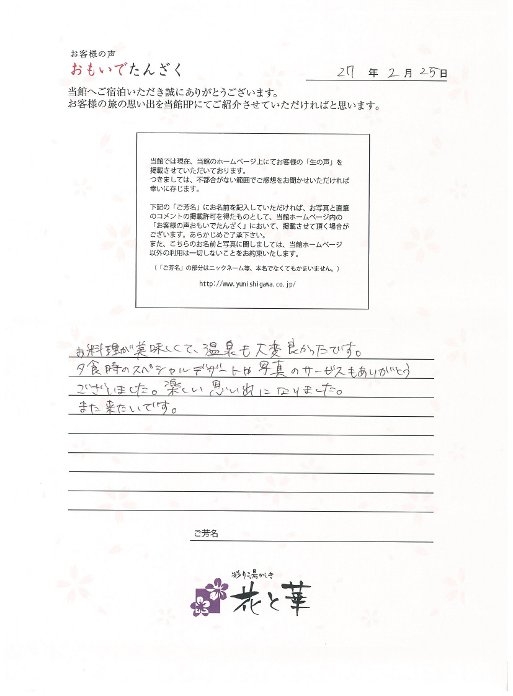 お客様の声
おもいでたんざく
27 年 2 月 25 日
当館へご宿泊いただき誠にありがとうございます。
お客様の旅の思い出を当館HPにてご紹介させていただければと思います。
当館では現在、当館のホームページ上にてお客様の「生の声」を
掲載させていただいております。
つきましては、不都合がない範囲でご感想をお聞かせいただければ
幸いに存じます。
下記の「ご芳名」にお名前を記入していただければ、お写真と直筆
のコメントの掲載許可を得たものとして、当館ホームページ内の
「お客様の声おもいでたんざく」において、掲載させて頂く場合が
ございます。あらかじめご了承下さい。
また、こちらのお名前と写真に関しましては、当館ホームページ
以外の利用は一切しないことをお約束いたします。
（「ご芳名」の部分はニックネーム等、本名でなくてもかまいません。）
http://www.yunishigawa.co.jp/
お料理が美味しくて、温泉も大変良かったです。
夕食時のスペシャルデザートや写真のサービスもありがとう
ございました。楽しい思い出になりました。
また来たいです。
ご芳名
彩り湯かしき
花と華